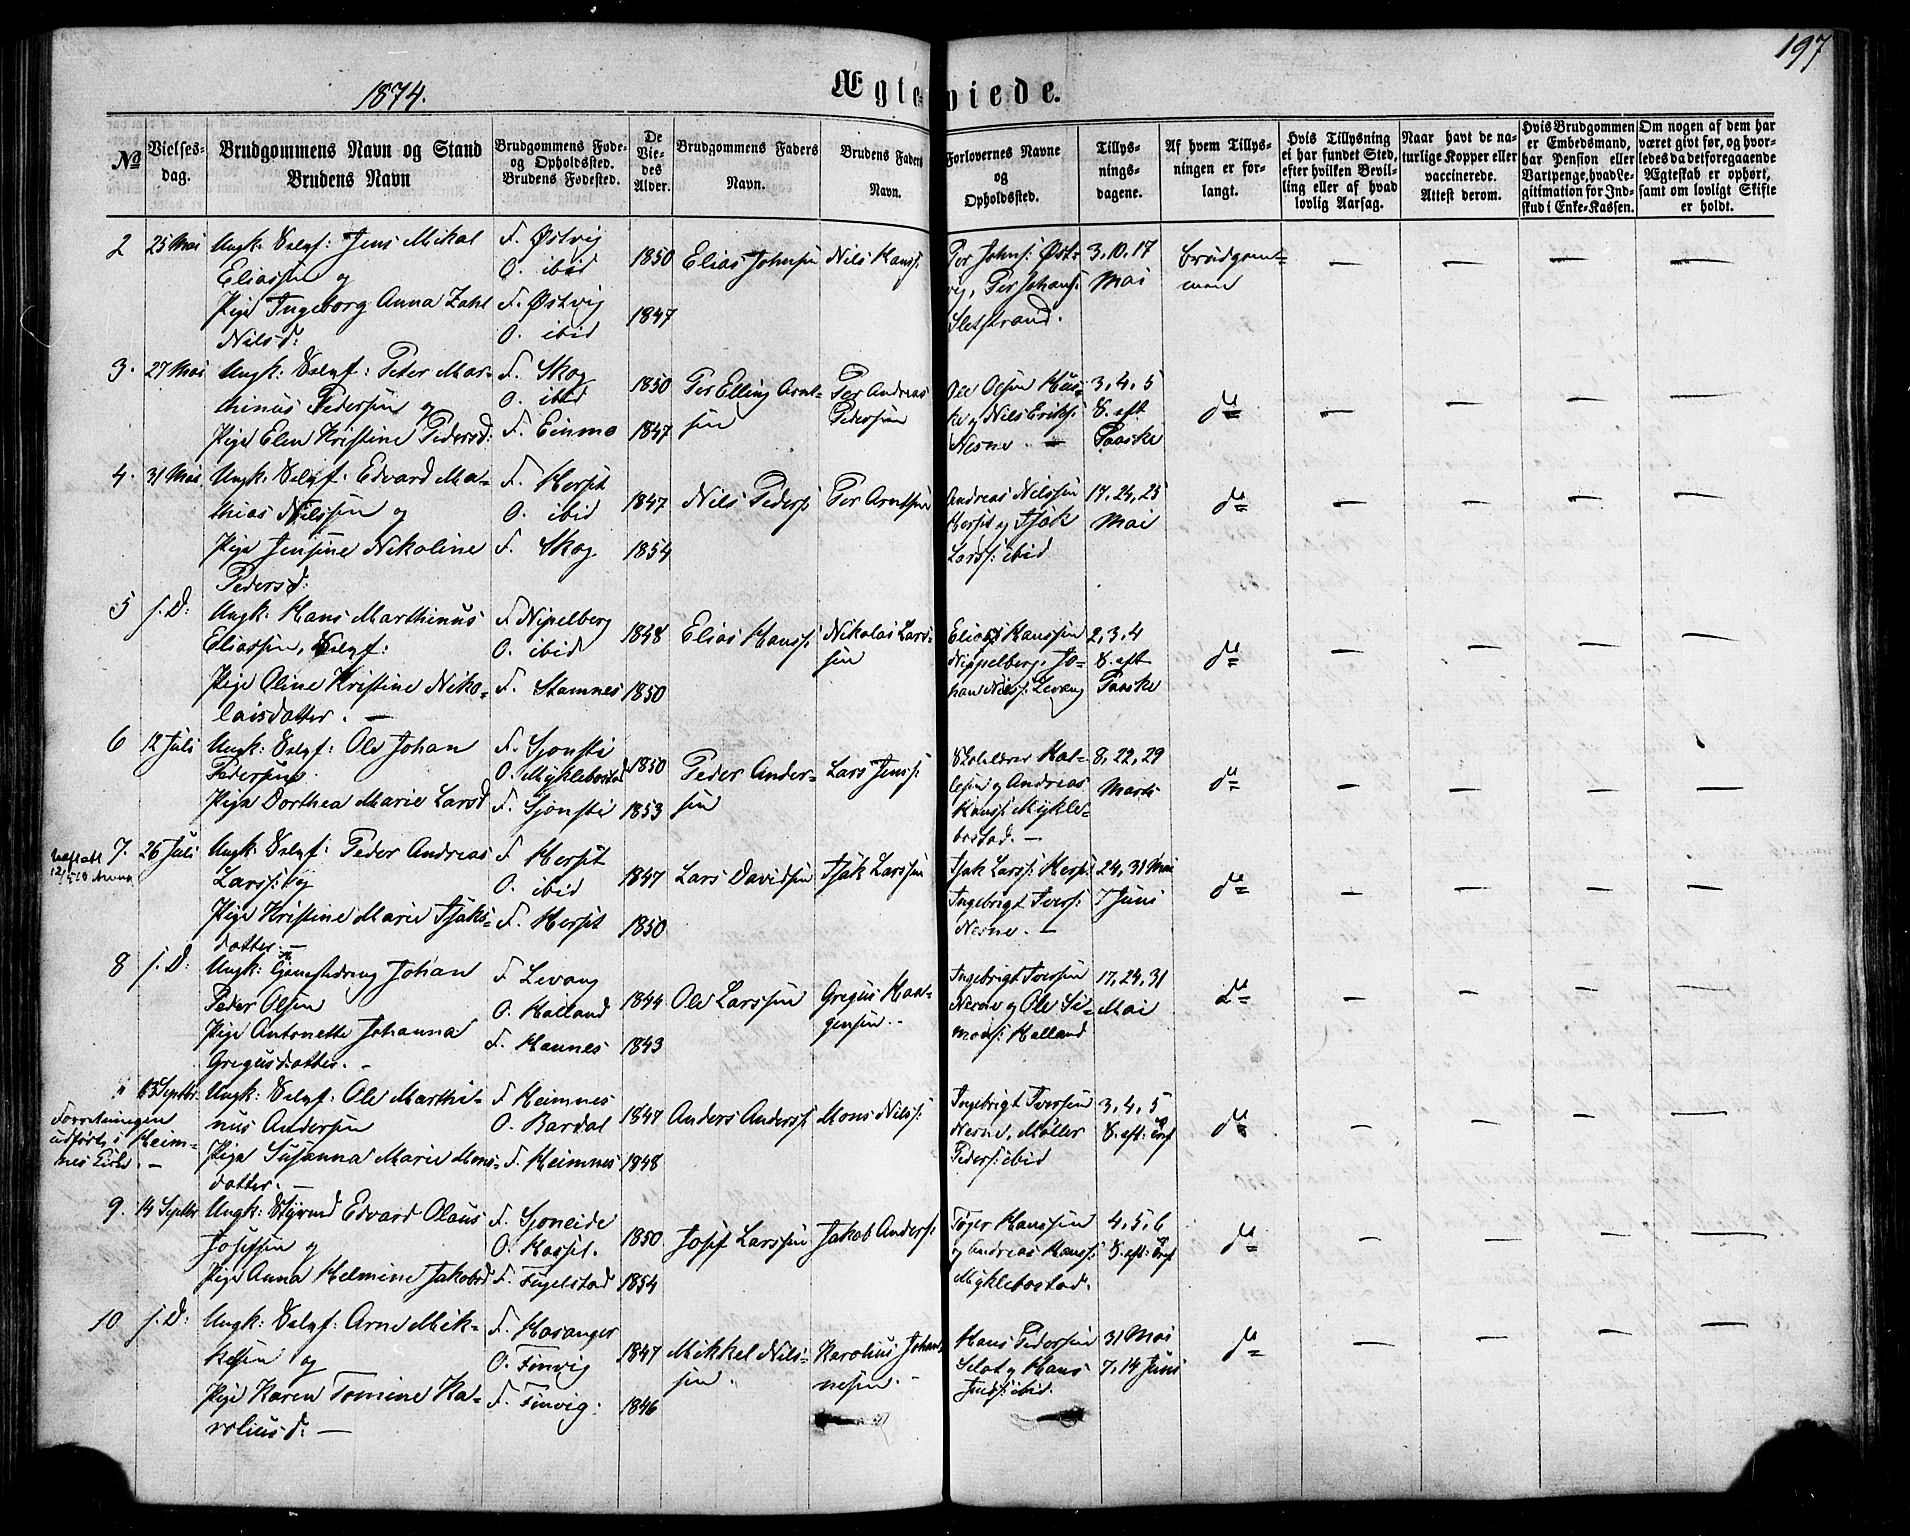 197
1874.
Ægteviede.
No
Vielses-
dag.
Brudgommens Navn og Stand
Brudens Navn
Brudgommens Føde-
og Opholdssted.
Brudens Fødested.
De
Vie-
des
Alder.
Brudgommens Faders
Navn.
Brudens Faders
Navn.
Forlovernes Navne
og
Opholdssted.
Tillys-
nings-
dagene.
Af hvem Tillys-
ningen er for-
langt.
Hvis Tillysning
ei har fundet Sted,
efter hvilken Bevil-
ling eller af hvad
lovlig Aarsag.
Naar havt de na-
turlige Kopper eller
vaccinerede.
Attest derom.
Hvis Brudgommen
er Embedsmand,
har Pension eller
Vartpenge, hvad Le-
gitimation for Ind-
skud i Enke-Kassen.
Om nogen af dem har
været givt før, og hvor-
ledes da det foregaaende
Ægteskab er ophørt,
samt om lovligt Skifte
er holdt.
2 25 Mai Ungk: Selvf: Jens Mikal
Eliassen og
Pige Ingeborg Anna Zahl
Nilsd:
F. Østvig
O. ibid
F. Østvig
O. ibid
1850
1847
Elias Johnsen
Nils Hanss:
Per Johns: Øst-
vig, Per Johans:
Sletstrand.
3, 10, 17
Mai
Brudgom-
men
— — — —
3. 27 Mai Ungk: Selvf: Peter Mar-
thinus Pedersen og
Pige Elen Kristine Pedersd:
F. Skog
O. ibid
F. Einmo
1850
1847
Per Elling Arnt-
sen
Per Andreas
Pedersen
Ole Olsen Hus-
by og Nils Eriks:
Nesne. —
3, 4, 5
S. eft
Paaske
do
— — — —
4. 31 Mai Ungk: Selvf: Edvard Ma-
thias Nilssen og
Pige Jensine Nikoline
Pedersd:
F. Herset
O. ibid
F. Skog
1847
1854
Nils Peders:
Per Arntsen
Andreas Nilssen
Herset og Isak
Larss: ibid
17, 24, 25
Mai
do
— — — —
5 s. D: Ungk: Hans Marthinus
Eliassen, Selvf:
Pige Oline Kristine Niko-
laisdatter. —
F. Nipelberg
O. ibid
F. Stamnes
1848
1850
Elias Hanss:
Nikolai Lars-
sen
Elias Hanssen
Nippelberg, Jo-
han Nils: Levang
2, 3, 4
S. eft
Paaske
do
— — — —
6 12 Juli Ungk: Selvf: Ole Johan
Pedersen
Pige Dorthea Marie Larsd
F. Sjonsti
O. Myklebostad
F. Sjonsti
1850
1853
Peder Ander-
sen
Lars Jenss:
Andreas
Hanss: Mykle-
bostad. —
8, 22, 29
Marts
do
— — — —
7. 26 Juli Ungk: Selvf: Peder Andreas
Larss: og
Pige Kristine Marie Isaks-
datter. —
F. Herset
O. ibid
F. Herset
1847
1850
Lars Davidsen
Isak Larssen
Isak Larss: Hers:
Ingebrigt Ivers:
Nesne. —
24, 31 Mai
7 Juni
do
— — — —
8 s. D: Ungk: Johan
Peder Olsen
Pige Antonette Johanna
Gregusdatter. —
F. Levang
O. Haland
F. Hannes
1844
1843
Ole Larssen
Gregus Haa-
gensen. -
Ingebrigt Iversen
Nesne og Ole Si-
mons: Halland
17, 24, 31
Mai
do
— — — —
" 13 Septbr. Ungk: Selvf: Ole Marthi-
nus Andersen
Pige Susanna Marie Mons-
datter. —
Forretningen
udførts i Heim-
nes Kirke. —
F. Heimnes
O. Bardal
F. Heimnes
1847
1848
Anders Anderss:
Mons Nilss:
Ingebrigt Iversen
Nesne, Møller
Peders: ibid
3, 4, 5
S. eft: Tref
do
— — — —
9. 14 Septbr Ungk: Styrmd Edvard Olaus
Josefsen og
Pige Anna Helmine Jakobsd
F. Sjoneide
O. Hasset.
F. Fugelstad
1850
1854
Josef Larssen
Jakob Anders:
Tøger Hanssen
og Andreas Hanss:
Myklebostad.
4, 5, 6
S. eft: Tref
do
— — — —
10 s. D: Ungk: Selvf: Arne Mik-
kelsen og
Pige Karen Tomine Ka-
roliusd: —
F. Hasanger
O. Finvig
F. Finvig.
1847
1846
Mikkel Nils-
sen.
Karolius Johan-
nesen. -
Hans Pedersen
Selat og Hans
ibid.
31 Mai
7, 14 Juni
do
— — — —